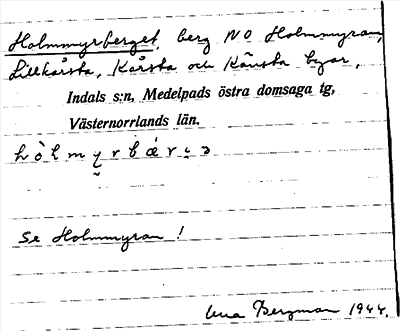 Holmmyrberget, berg NO Holmmyran,
Lillkårsta, Kårsta och Känsta byar,
Indals s:n, Medelpads östra domsaga tg,
Västernorrlands län.
Se Holmmyran!
Bergman 1944.